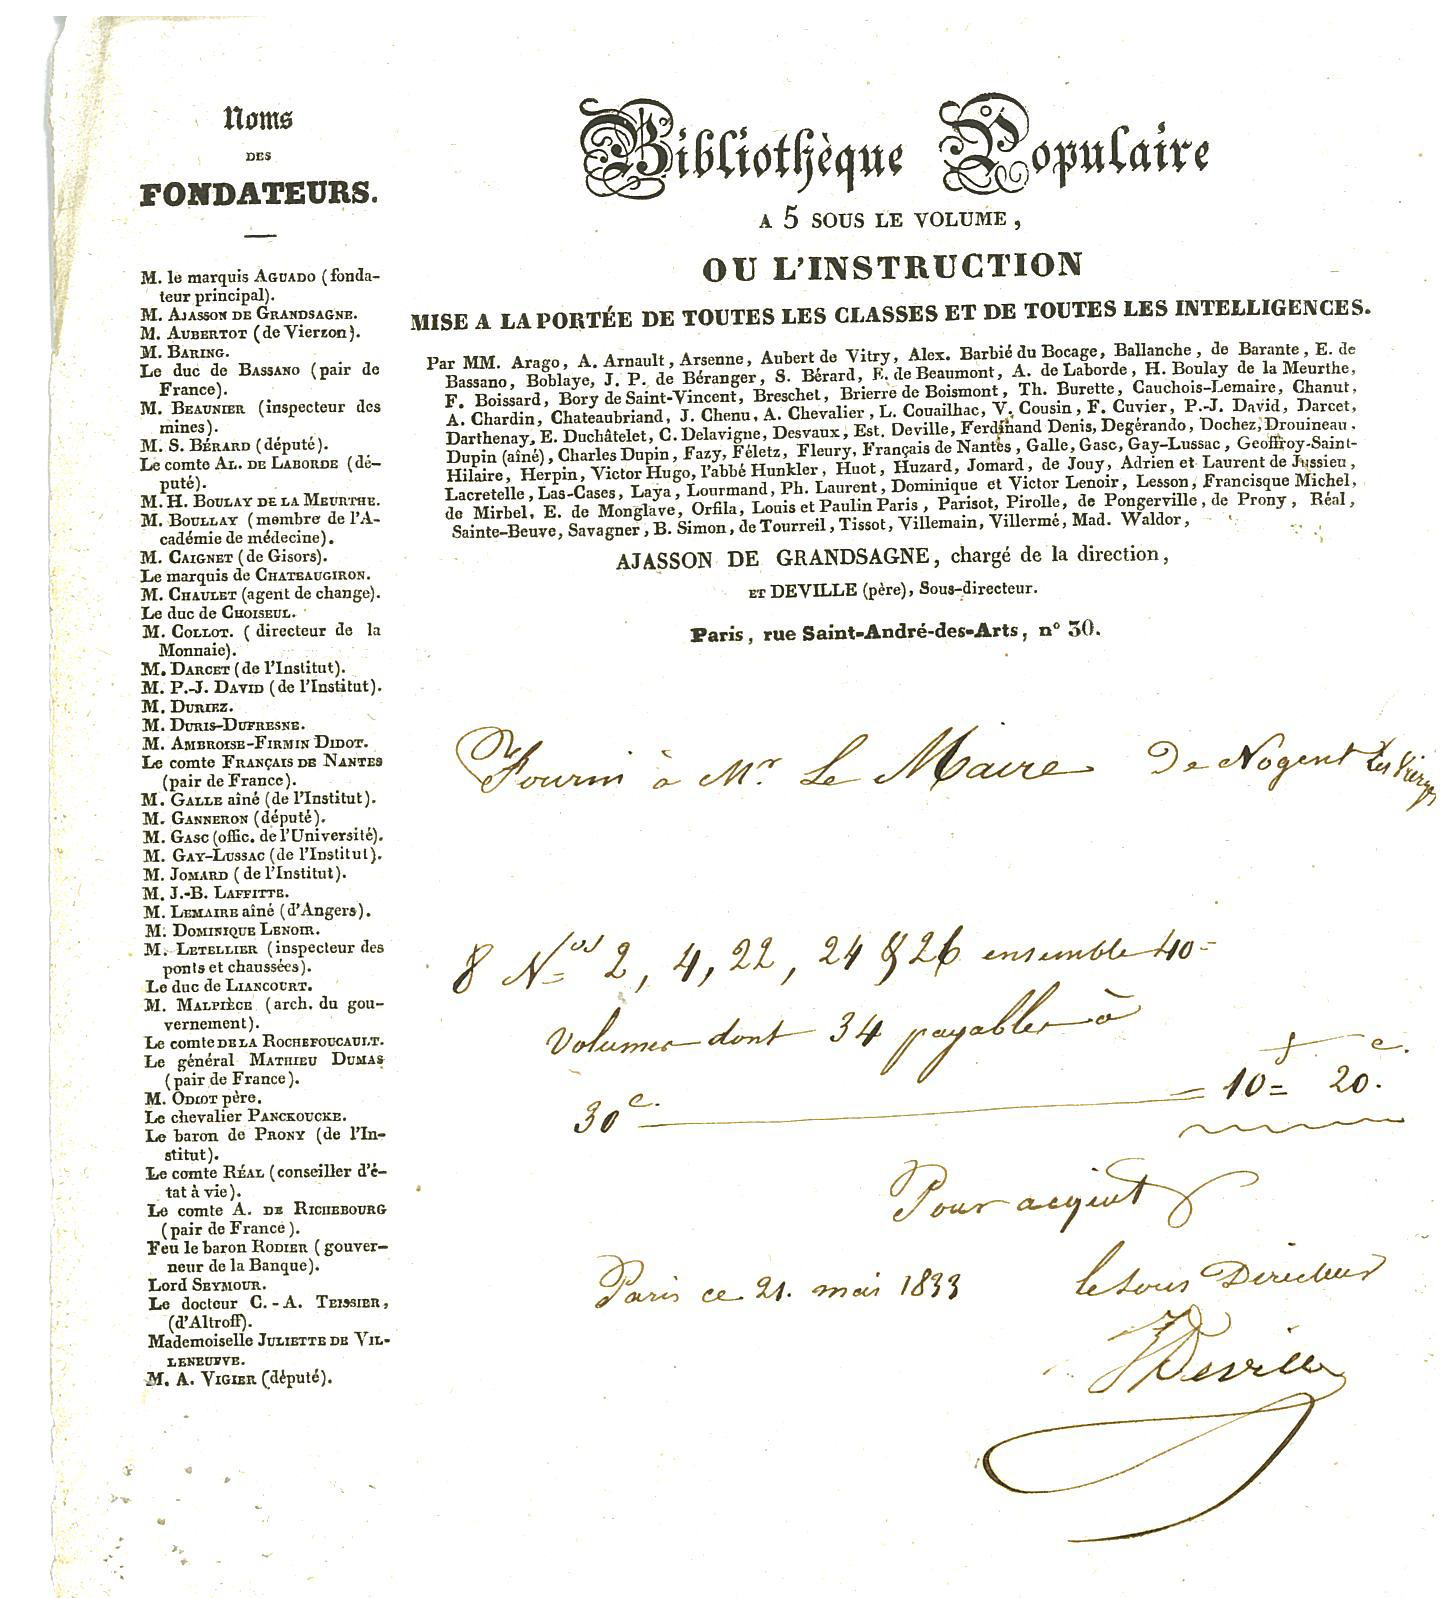 Noms
DES
FONDATEURS.
M. le marquis AGUADO (fonda-
teur principal).
M. AJASSON DE GRANDSAGNE.
M. AUBERTOT (de Vierzon).
M. BARING.
Le duc de BASSANO (pair de
France).
M. BEAUNIER (inspecteur des
mines).
M. S. BÉRARD (député).
Le comte AL. DE LABORDE (dé-
puté).
M. H. BOULAY DE LA MEURTHE.
M. BOULLAY (membre de l'A-
cadémie de médecine).
M. CAIGNET (de Gisors).
Le marquis de CHATEAUGIRON.
M. CHAULET (agent de change).
Le duc de CHOISEUL.
M. COLLOT. (directeur de la
Monnaie).
M. DARCET (de l'Institut).
M. P.-J. DAVID (de l'Institut).
M. DURIEZ.
M. DURIS-DUFRESNE.
M. AMBROISE-FIRMIN DIDOT.
Le comte FRANÇAIS DE NANTES
(pair de France).
M. GALLE aîné (de l'Institut).
M. GANNERON (député).
M. GASC (offic. de l'Université).
M. GAY-LUSSAC (de l'Institut).
M. JOMARD (de l'Institut).
M. J.-B. LAFFITTE.
M. LEMAIRE aîné (d'Angers).
M. DOMINIQUE LENOIR.
M. LETELLIER (inspecteur des
ponts et chaussées).
Le duc de LIANCOURT.
M. MALPIÈCE (arch. du gou-
vernement).
Le comte DE LA ROCHEFOUCAULT.
Le général MATHIEU DUMAS
(pair de France).
M. ODIOT père.
Le chevalier PANCKOUCKE.
Le baron de PRONY (de l'In-
stitut).
Le comte RÉAL (conseiller d'é-
tat à vie).
Le comte A. DE RICHEBOURG
(pair de France).
Feu le baron RODIER (gouver-
neur de la Banque).
Lord SEYMOUR.
Le docteur C.-A. TEISSIER,
(d'Altroff).
Mademoiselle JULIETTE DE VIL-
LENEUFVE.
M. A. VIGIER (député).
Bibliothèque Populaire
A 5 SOUS LE VOLUME,
OU L'INSTRUCTION
MISE A LA PORTÉE DE TOUTES LES CLASSES ET DE TOUTES LES INTELLIGENCES.
Par MM. Arago, A. Arnault, Arsenne, Aubert de Vitry, Alex. Barbié du Bocage, Ballanche, de Barante, E. de
Bassano, Boblaye, J. P. de Béranger, S. Bérard, E. de Beaumont, A. de Laborde, H. Boulay de la Meurthe,
F. Boissard, Bory de Saint-Vincent, Breschet, Brierre de Boismont, Th. Burette, Cauchois-Lemaire, Chanut,
A. Chardin, Chateaubriand, J. Chenu, A. Chevalier, L. Couailhac, V. Cousin, F. Cuvier, P.-J. David, Darcet,
Darthenay, E. Duchâtelet, C. Delavigne, Desvaux, Est. Deville, Ferdinand Denis, Degérando, Dochez, Drouineau,
Dupin (aîné), Charles Dupin, Fazy, Féletz, Fleury, Français de Nantes, Galle, Gasc, Gay-Lussac, Geoffroy-Saint-
Hilaire, Herpin, Victor Hugo, l'abbé Hunkler, Huot, Huzard, Jomard, de Jouy, Adrien et Laurent de Jussieu,
Lacretelle, Las-Cases, Laya, Lourmand, Ph. Laurent, Dominique et Victor Lenoir, Lesson, Francisque Michel,
de Mirbel, E. de Monglave, Orfila, Louis et Paulin Paris, Parisot, Pirolle, de Pongerville, de Prony, Réal,
Sainte-Beuve, Savagner, B. Simon, de Tourreil, Tissot, Villemain, Villermé, Mad. Waldor,
AJASSON DE GRANDSAGNE, chargé de la direction,
ET DEVILLE (père), Sous-directeur.
Paris, rue Saint-André-des-Arts, n° 30.
Fourni à Mr Le Maire De Nogent Les Vierges
8 Nos 2, 4, 22, 24 & 26 ensemble 40=
volumes dont 34 payables à
30c. = 10f = 20c.
Pour acquit
Paris ce 21. mai 1833 le sous Directeur
Deville